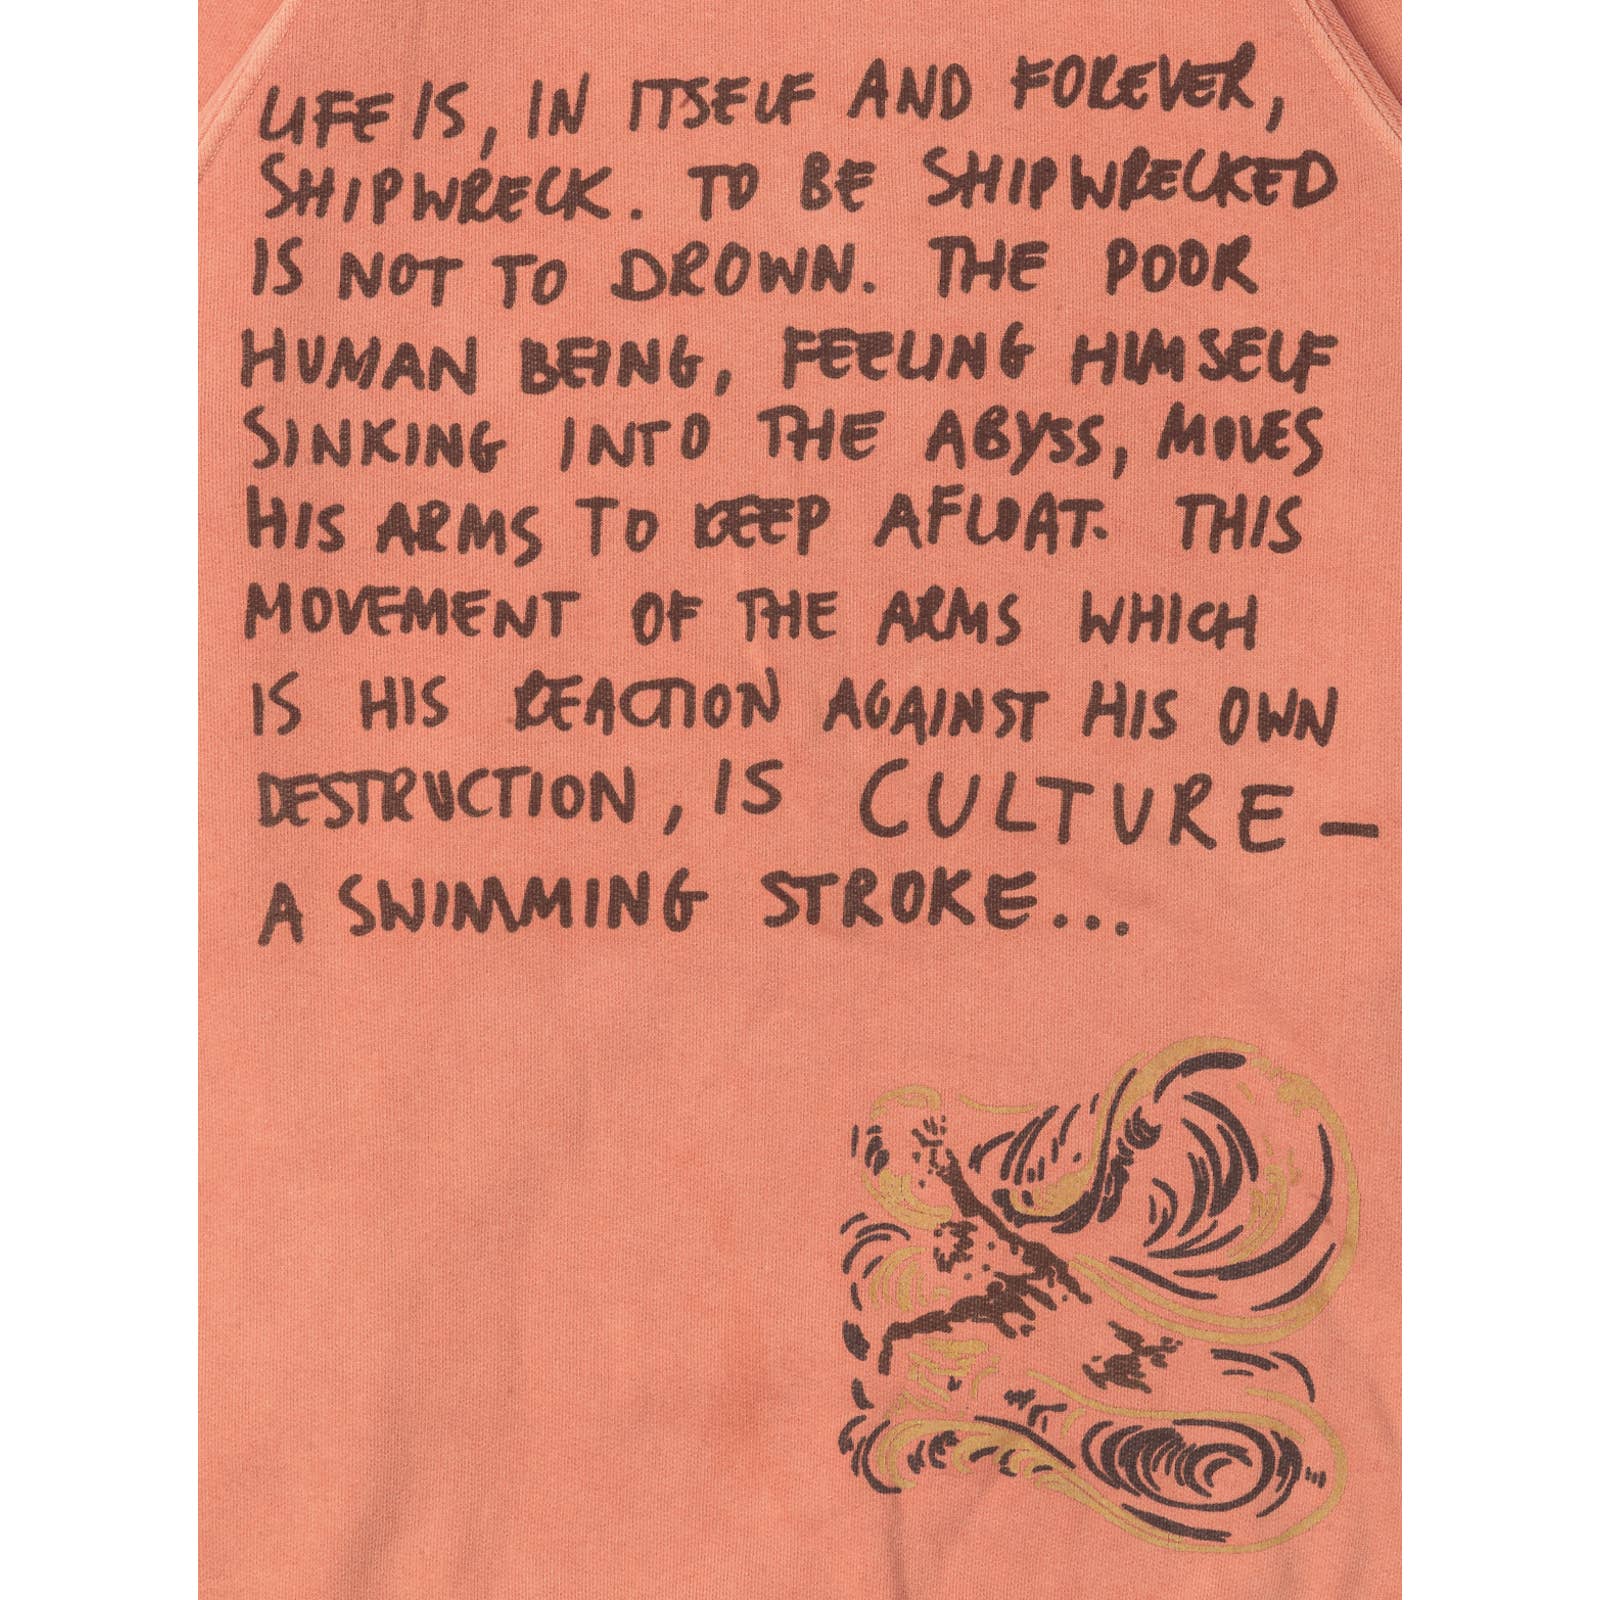 LIFE IS, IN ITSELF AND FOREVER,
SHIPWRECK. TO BE SHIPWRECKED
IS NOT TO DROWN. THE POOR
HUMAN BEING, FEELING HIMSELF
SINKING INTO THE ABYSS, MOVES
HIS ARMS TO KEEP AFLOAT. THIS
MOVEMENT OF THE ARMS WHICH
IS HIS REACTION AGAINST HIS OWN
DESTRUCTION, IS CULTURE —
A SWIMMING STROKE...